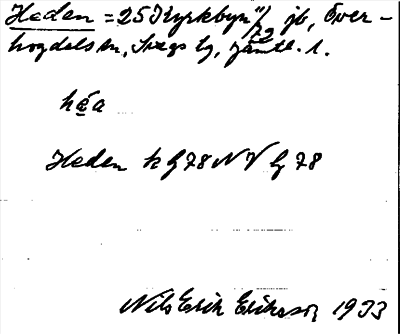 Heden = 25 Kyrkbyn 1/72 jb, Över-
hogdals sn, Svegs tg, Jämtl. l.
héa
Heden
Nils Erik Eriksson 1933